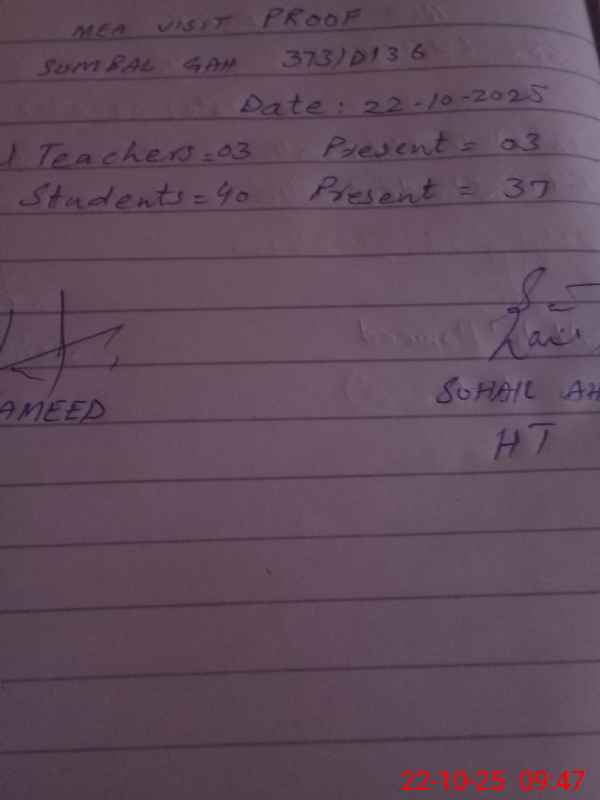 MEA VISIT PROOF
SUMBAL GAH 373)D136
Date: 22-10-2025
Teachers=03 Present = 03
Students=40 Present = 37
AMEED
SUHAIL AH
HT
22-10-25 09:47